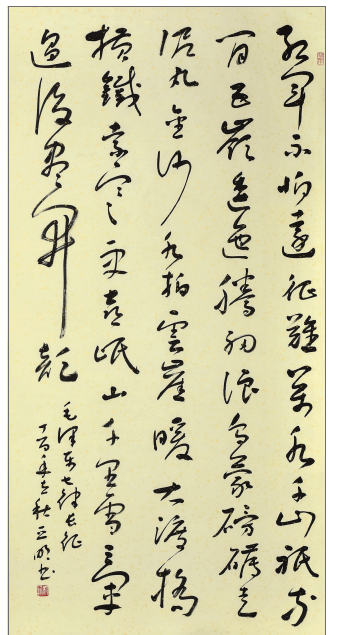 紅軍不怕遠征難萬水千山祇等
閒五嶺逶迤騰細浪烏蒙磅礴走
泥丸金沙水拍雲崖暖大渡橋
橫鐵索寒更喜岷山千里雪三軍
過後盡開顏
毛泽东七律长征
秋立明书